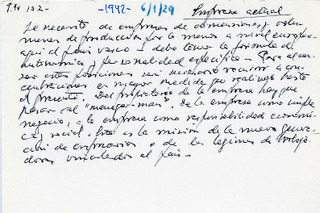 -1942- 6/1/29 Empresa actual
Se necesita de empresas de dimensiones y volu-
menes de producción por lo menos a nivel europeo
aqui el pais vasco y debe tener la formula de
autonomia y personalidad especifica - Para alcan-
zar estas posiciones será necesario recurrir a con-
centraciones en mayor medida que realizadas hasta
el presente. Del propietario de la empresa hay que
pasar al "manager-man". De la empresa como simple
negocio, a la empresa como responsabilidad economica
y social. Esta es la misión de la nueva genera-
ción de empresarios o de las legiones de trabaja-
dores vinculados al pais -